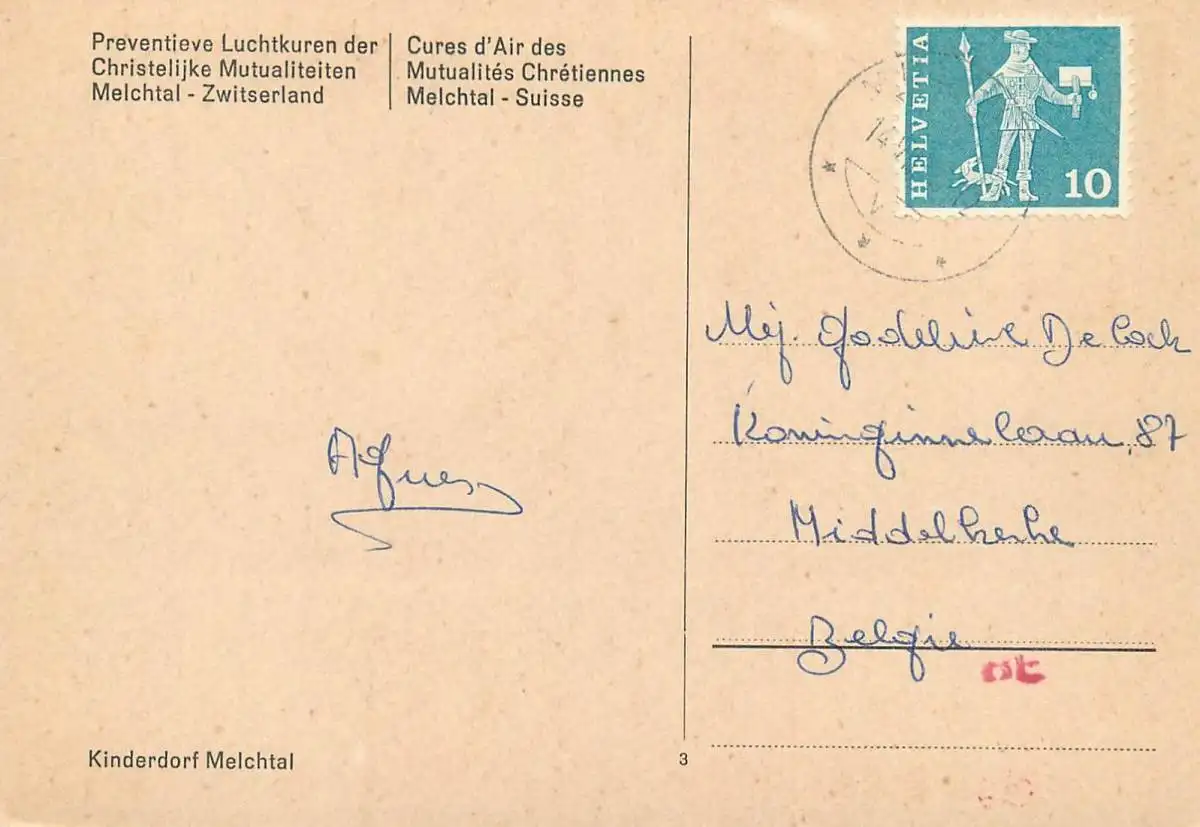 Preventieve Luchtkuren der
Christelijke Mutualiteiten
Melchtal - Zwitserland
Cures d'Air des
Mutualités Chrétiennes
Melchtal - Suisse
HELVETIA
10
Mej. Godelieve De Cock
Koninginnelaan, 87
Middelkerke
België
Agnes
Kinderdorf Melchtal
3